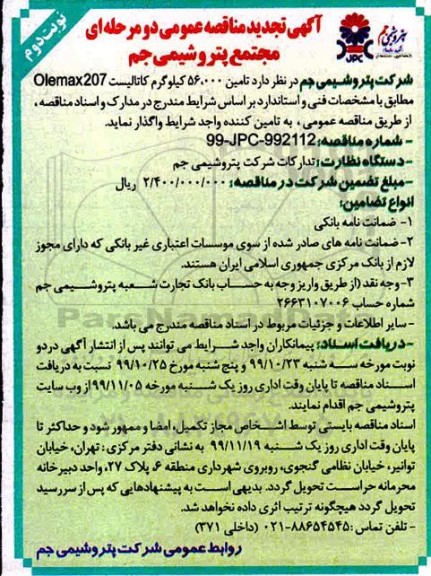 نوبت دوم
آگهی تجدید مناقصه عمومی دو مرحله‌ای
مجتمع پتروشیمی جم
پتروشیمی جم
JPC
شرکت پتروشیمی جم در نظر دارد تامین ۵۶،۰۰۰ کیلوگرم کاتالیست Olemax207
مطابق با مشخصات فنی و استاندارد بر اساس شرایط مندرج در مدارک و اسناد مناقصه ،
از طریق مناقصه عمومی ، به تامین کننده واجد شرایط واگذار نماید.
- شماره مناقصه: 99-JPC-992112
- دستگاه نظارت: تدارکات شرکت پتروشیمی جم
- مبلغ تضمین شرکت در مناقصه: ۲/۴۰۰/۰۰۰/۰۰۰ ریال
انواع تضامین:
۱- ضمانت نامه بانکی
۲- ضمانت نامه های صادر شده از سوی موسسات اعتباری غیر بانکی که دارای مجوز
لازم از بانک مرکزی جمهوری اسلامی ایران هستند.
۳- وجه نقد (از طریق واریز وجه به حساب بانک تجارت شعبه پتروشیمی جم
شماره حساب ۲۶۶۳۱۰۷۰۰۶
- سایر اطلاعات و جزئیات مربوط در اسناد مناقصه مندرج می باشد.
- دریافت اسناد: پیمانکاران واجد شرایط می توانند پس از انتشار آگهی در دو
نوبت مورخه سه شنبه ۹۹/۱۰/۲۳ و پنج شنبه مورخ ۹۹/۱۰/۲۵ نسبت به دریافت
اسناد مناقصه تا پایان وقت اداری روز یک شنبه مورخه ۹۹/۱۱/۰۵ از وب سایت
پتروشیمی جم اقدام نمایند.
اسناد مناقصه بایستی توسط اشخاص مجاز تکمیل، امضا و ممهور شود و حداکثر تا
پایان وقت اداری روز یک شنبه ۹۹/۱۱/۱۹ به نشانی دفتر مرکزی: تهران، خیابان
توانیر، خیابان نظامی گنجوی، روبروی شهرداری منطقه ۶، پلاک ۲۷، واحد دبیرخانه
محرمانه حراست تحویل گردد. بدیهی است به پیشنهادهایی که پس از سررسید
تحویل گردد هیچگونه ترتیب اثری داده نخواهد شد.
- تلفن تماس: ۸۸۶۵۴۵۴۵-۰۲۱ (داخلی ۳۷۱)
روابط عمومی شرکت پتروشیمی جم